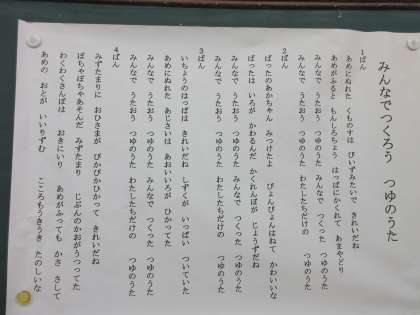 みんなでつくろう　つゆのうた
１ばん
あめにぬれた　くものすは　びいずみたいで　きれいだね
あめがふると　もんしろちょう　はっぱにかくれて　あまやどり
みんなで　うたおう　つゆのうた　みんなで　つくった　つゆのうた
みんなで　うたおう　つゆのうた　わたしたちだけの　つゆのうた
２ばん
ばったのあかちゃん　みつけたよ　ぴょんぴょんはねて　かわいいな
ばったは　いろが　かわるんだ　かくれんぼが　じょうずだね
みんなで　うたおう　つゆのうた　みんなで　つくった　つゆのうた
みんなで　うたおう　つゆのうた　わたしたちだけの　つゆのうた
３ばん
いちょうのはっぱは　きれいだね　しずくが　いっぱい　ついていた
あめにぬれた　あじさいは　あおいいろが　ひかってた
みんなで　うたおう　つゆのうた　みんなで　つくった　つゆのうた
みんなで　うたおう　つゆのうた　わたしたちだけの　つゆのうた
４ばん
みずたまりに　おひさまが　ぴかぴかひかって　きれいだね
ぱちゃぱちゃあそんだ　みずたまり　じぶんのかおがうつってた
わくわくさんぽは　おきにいり　あめがふっても　かさ　さして
あめの　おとが　いいりずむ　こころもうきうき　たのしいな